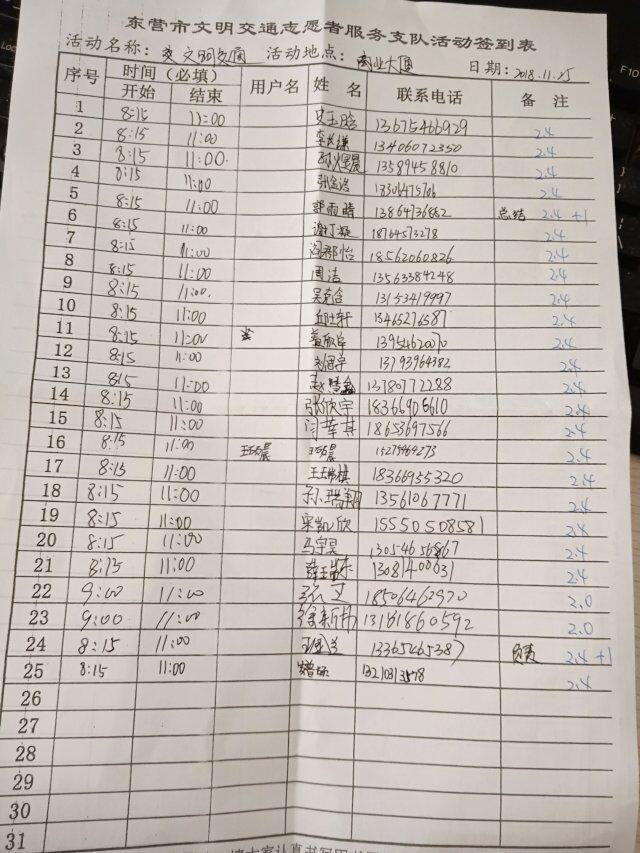 东营市文明交通志愿者服务支队活动签到表
活动名称: 文明 活动地点: 商业大厦 日期: 2018.11.25
序号 时间(必填) 用户名 姓 名 联系电话 备 注
开始 结束
1 8:15 11:00 13675466929
2 8:15 11:00 13406072350 2.4
3 8:15 11:00. 13589458810 2.4
4 8:15 11:00 张金洁 18306475706 2.4
5 8:15 11:00 郭雨晴 13864736882 总结 2.4 +1
6 8:15 11:00 谢丁凝 18764573278 2.4
7 8:15 11:00 阎郡怡 18562060826 2.4
8 8:15 11:00 周洁 13563384248 2.4
9 8:15 11:00. 吴克含 13153419997 2.4
10 8:15 11:00 邱士轩 13465276587 2.4
11 8:15 11:00 1395462007 2.4
12 8:15 11:00 刘冠宇 13793964382 2.4
13 8:15 11:00 赵 13780772288 2.4
14 8:15 11:00 张欣宇 18366905610 2.4
15 8:15 11:00 闫苹苹 18653697566 2.4
16 8:15 11:00 王晓晨 王晓晨 15275969273 2.4
17 8:15 11:00 王瑞棋 18366955320 2.4
18 8:15 11:00 孙瑞翔 13561067771 2.4
19 8:15 11:00 宋凯欣 15550508581 2.4
20 8:15 11:00 马宇昊 13054656867 2.4
21 8:15 11:00 薛 13081400631 2.4
22 9:00 11:00 18506462970 2.0
23 9:00 11:00 徐新 13181860592 2.0
24 8:15 11:00 13365465387 负责 2.4 +1
25 8:15 11:00 13210313578 2.4
26
27
28
29
30
31